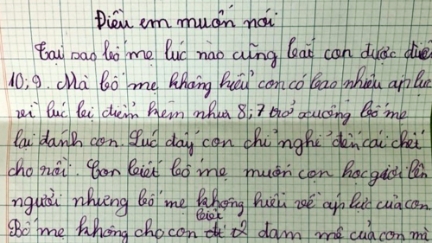 Điều em muốn nói
Tại sao bố mẹ lúc nào cũng bắt con được điểm
10; 9. Mà bố mẹ không hiểu con có bao nhiêu áp lực
vì lúc bị điểm kém như 8; 7 trở xuống bố mẹ
lại đánh con. Lúc đấy con chỉ nghĩ đến cái chết
cho rồi. Con biết bố mẹ muốn con học giỏi lên
người nhưng bố mẹ không hiểu về áp lực của con.
Bố mẹ không cho con biết đam mê của con mà